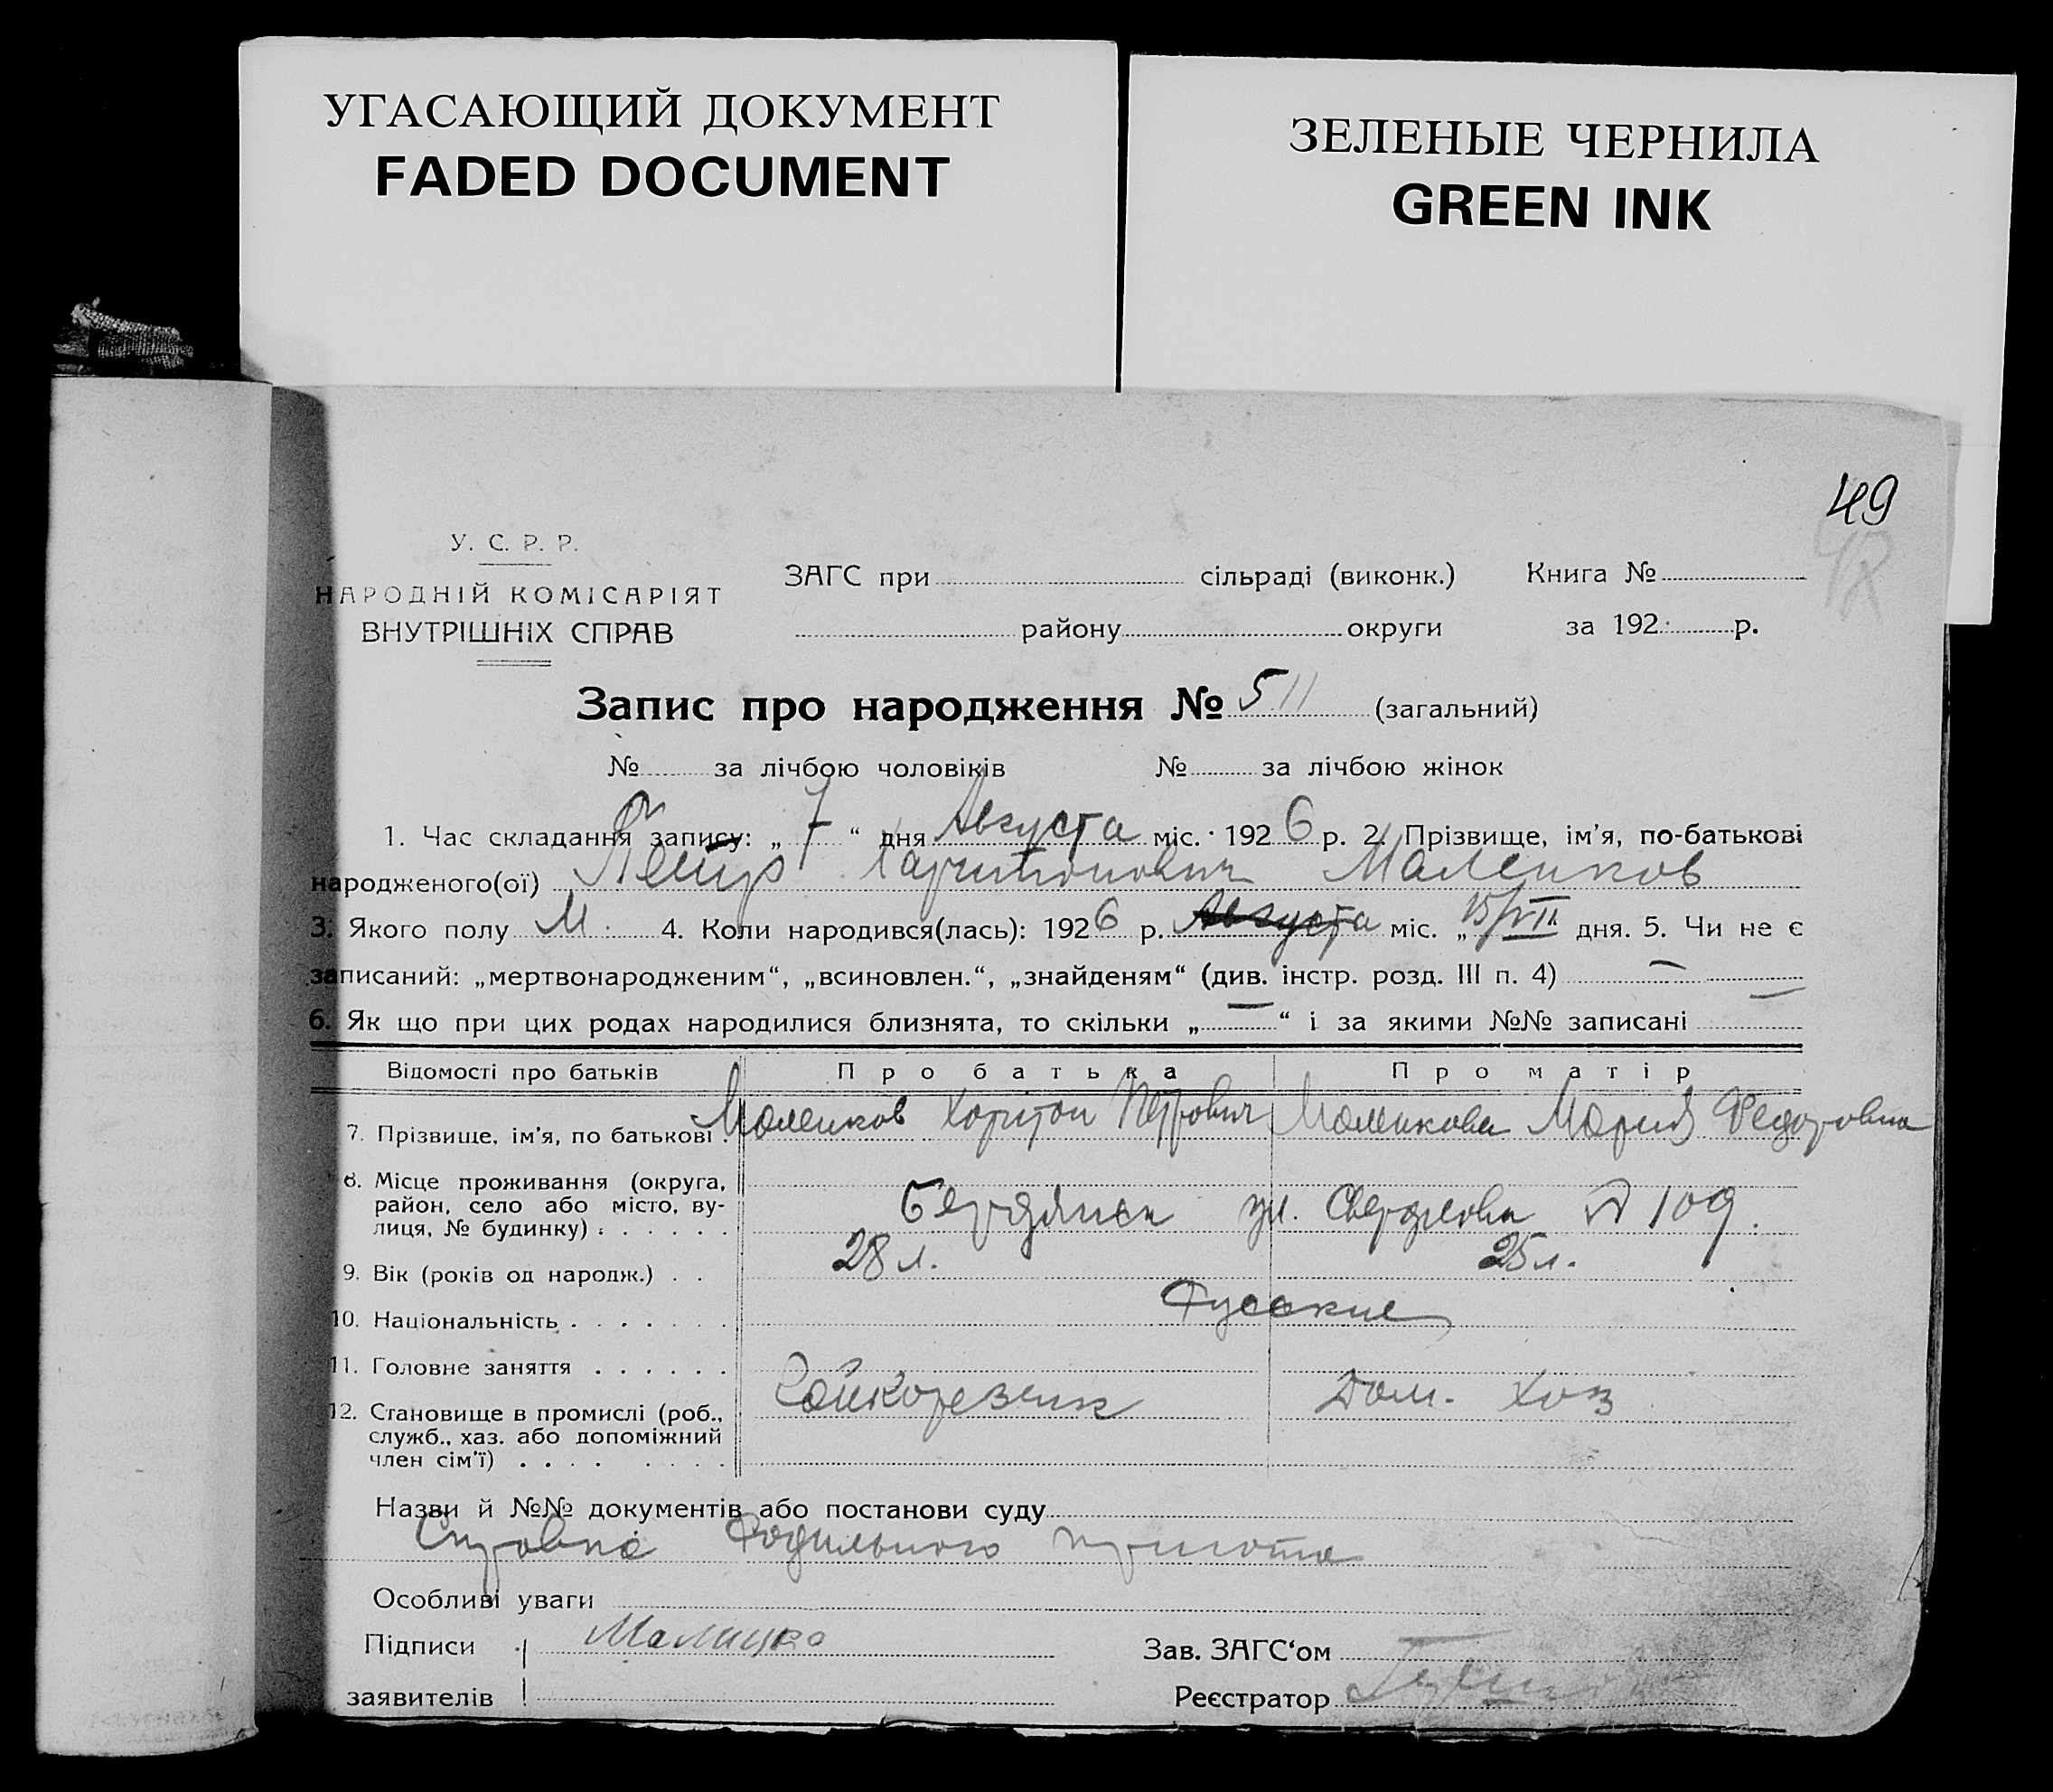 УГАСАЮЩИЙ ДОКУМЕНТ
FADED DOCUMENT
ЗЕЛЕНЫЕ ЧЕРНИЛА
GREEN INK
49
У. С. Р. Р.
НАРОДНІЙ КОМІСАРІЯТ
ВНУТРІШНІХ СПРАВ
ЗАГС при сільраді (виконк.) Книга №
району округи за 192 р.
Запис про народження № 511 (загальний)
№ за лічбою чоловіків № за лічбою жінок
1. Час складання запису: „ 7 “ дня Августа міс. 1926 р. 2. Прізвище, ім'я, по-батькові
народженого(ої) Петр Харитонович Маленков
3. Якого полу М. 4. Коли народився(лась): 1926 р. Августа міс. „ 15/VII дня. 5. Чи не є
записаний: „мертвонародженим“, „всиновлен.“, „знайденям“ (див. інстр. розд. III п. 4) —
6. Як що при цих родах народилися близнята, то скільки „ — “ і за якими №№ записані —
Відомості про батьків Про батька Про матір
7. Прізвище, ім'я, по батькові . Маленков Харитон Петрович Маленкова Мария Федоровна
8. Місце проживання (округа,
район, село або місто, ву-
лиця, № будинку) : . . . . . Бердянск ул. Свердлова № 109.
9. Вік (років од народж.) . . 28 л. 25 л.
10. Національність . . . . . . . Русские
11. Головне заняття . . . . . .
Дом. хоз
12. Становище в промислі (роб.,
служб., хаз. або допоміжний
член сім'ї) . . . . . . . .
Назви й №№ документів або постанови суду
Справка Родильного приюта
Особливі уваги
Підписи
Зав. ЗАГС‘ом
заявителів
Реєстратор